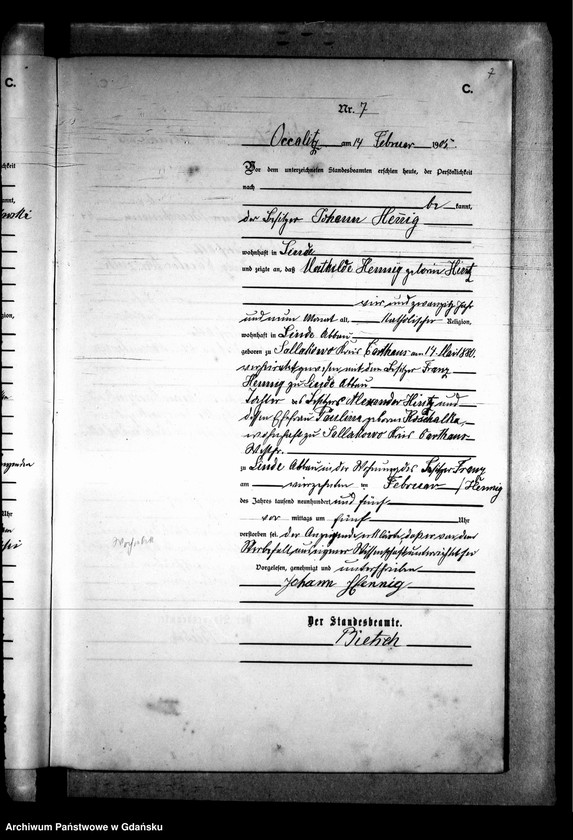 C.
7
C.
Nr. 7
Occalitz am 14 Februar 1905.
Vor dem unterzeichneten Standesbeamten erschien heute, der Persönlichkeit
nach
be kannt,
der Besitzer Johann Hennig
wohnhaft in Linde
und zeigte an, daß Mathilde Hennig geborene Hintz
vier und zwanzig Jahr
und neun Monat alt, katholischer Religion,
wohnhaft in Linde Abbau
geboren zu Sallakowo Kreis Carthaus am 17 Mai 1880.
verheirathet gewesen mit dem Besitzer Franz
Hennig zu Linde Abbau
Tochter des Besitzers Alexander Hintz und
dessen Ehefrau Pauline geborene
wohnhaft zu Sallakowo Kreis Carthaus
Westpr.
zu Linde Abbau, in der Wohnung des Besitzer Franz
am vierzehnten ten Februar / Hennig
des Jahres tausend neunhundert und fünf
vor mittags um fünf Uhr
verstorben sei, der Anzeigende erklärte, daß er von dem
Sterbefall aus eigener Wissenschaft unterrichtet sei
Vorgelesen, genehmigt und unterschrieben
Johann Hennig
Der Standesbeamte.
Bietsch
Archiwum Państwowe w Gdańsku